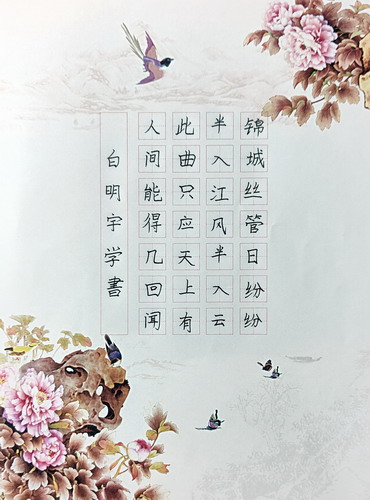 锦城丝管日纷纷
半入江风半入云
此曲只应天上有
人间能得几回闻
白明宇学書